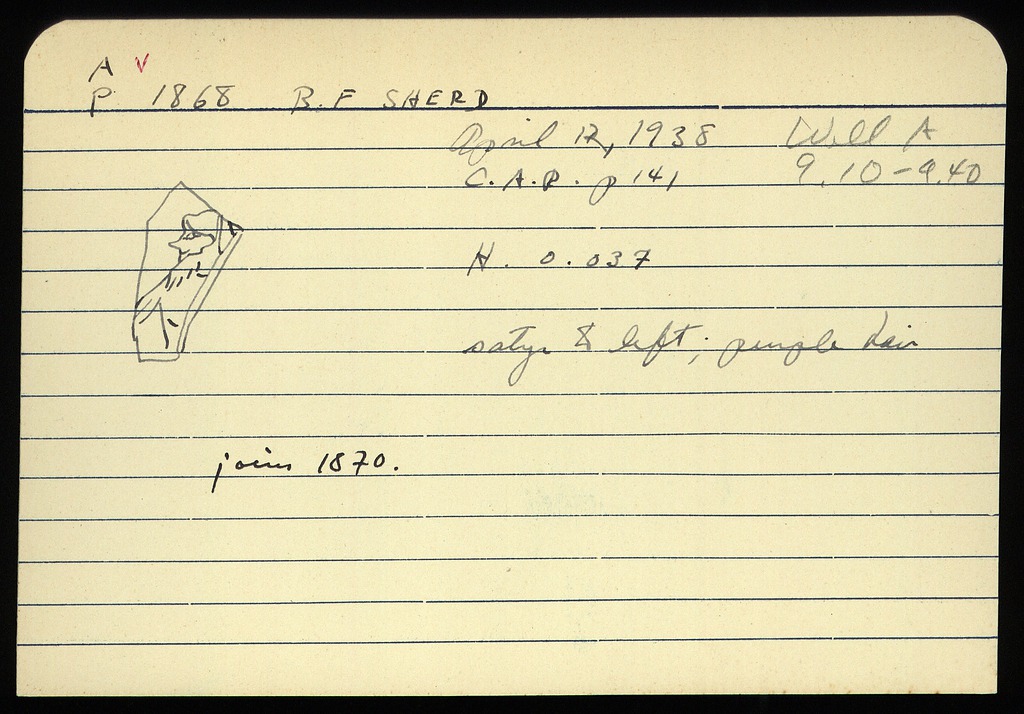 A V
P 1868 B.F SHERD
April 12, 1938 Well A
C.A.P. p 141 9.10-9.40
H. 0.037
satyr to left; purple hair
joins 1870.